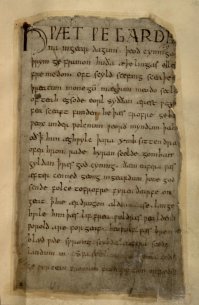 HǷÆT ǷE GARDE
na ingear dagum. þeod cyninga
þrym ge frunon huða æþelingas elle
fremedon. oft scyld scefing sceaþe
þreatum monegū mægþum meodo setla
of teah egsode eorl syððan ærest ƿear
fea sceaft funden he þæs frofre geba
ƿeox under ƿolcnum ƿeorð myndum þah
oð þ him æghƿylc þara ymb sittendra
ofer hron rade hyran scolde gomban
gyldan þ ƿæs god cyning. ðæm eafera ƿæs
æfter cenned geong ingeardum þone god
sende folce tofrofre fyren ðearfe on
geat þ hie ær drugon aldor ase. lange
hƿile him þæs lif frea ƿuldres ƿealdend
ƿorold are for geaf. beoƿulf ƿæs breme
blæd ƿide sprang scyldes eafera scede
landum in.
ge ƿyrcean fromum feoh giftum